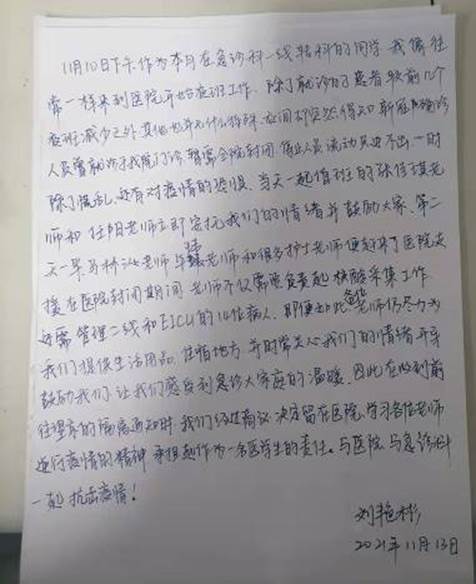 11月10日下午作为本月在急诊科一线转科的同学 我像往
常一样来到医院开始夜班工作. 除了就诊的患者较前几个
夜班减少之外 其他也并无什么特殊. 夜间却突然得知 新冠确诊
人员曾就诊于我院门诊 需全院封闭. 院内人员流动只进不出. 一时
除了慌乱,还有对疫情的恐惧. 当天一起值班的张佳琪老
师和任阳老师立即安抚我们的情绪并鼓励大家. 第二
天一早马林沁老师 老师和很多护士老师便赶来了医院支
援 在医院封闭期间 老师不仅需要负责起 核酸采集工作
还需管理二线和EICU的14位病人. 即便如此 老师仍尽力为
我们提供生活用品 住宿地方 并时常关心我们的情绪并亲
鼓励我们 让我们感受到急诊大家庭的温暖. 因此在收到前
往 的隔离通知时 我们经过商议 决定留在医院,学习各位老师
逆行疫情的精神 承担起作为一名医学生的责任. 与医院 与急诊科
一起抗击疫情!
刘艳彬
2021年11月13日